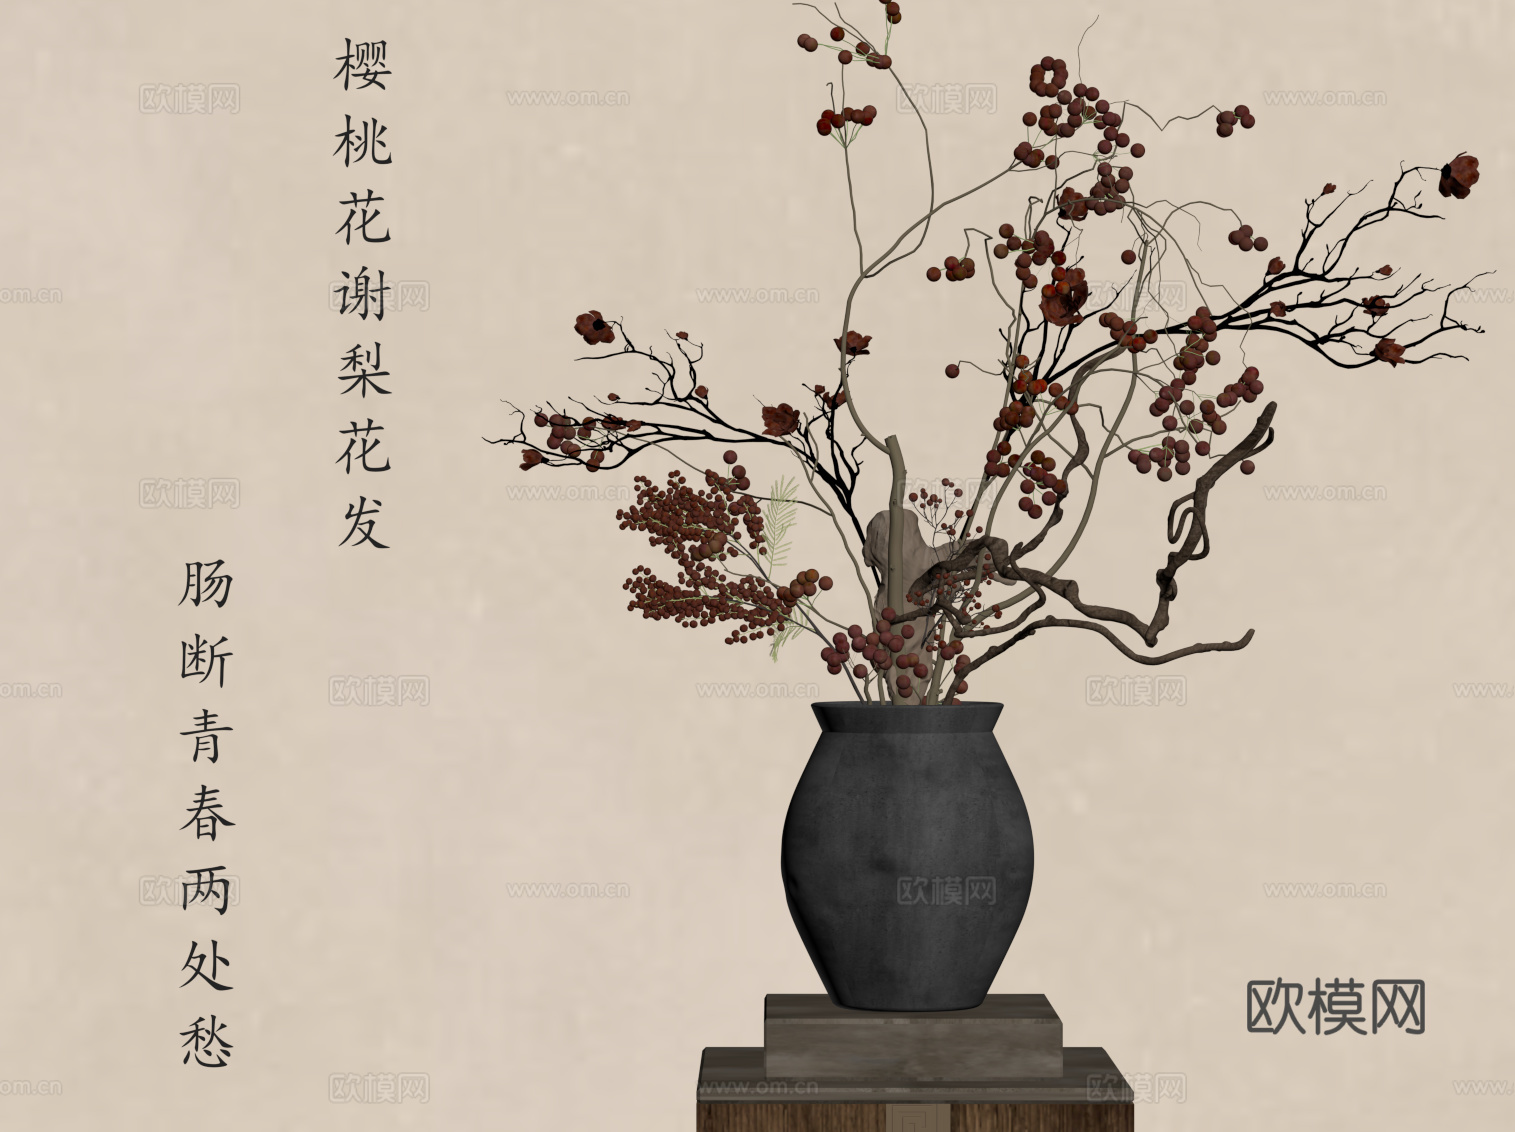 樱桃花谢梨花发
肠断青春两处愁
欧模网
www.om.cn